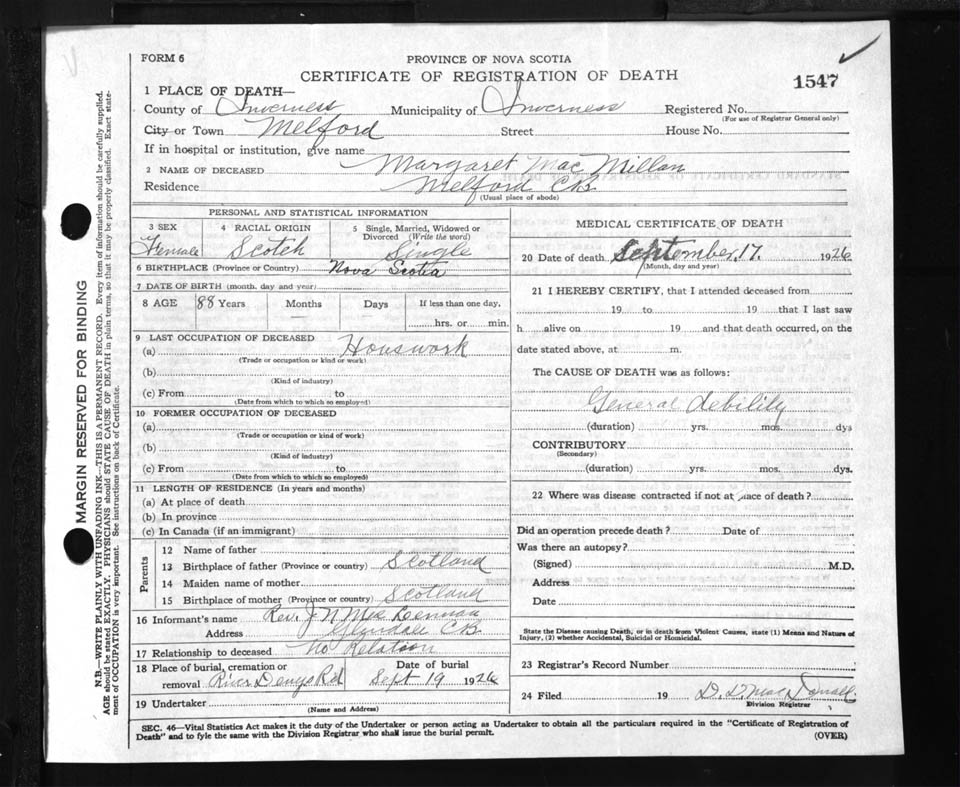 FORM 6
PROVINCE OF NOVA SCOTIA
CERTIFICATE OF REGISTRATION OF DEATH
1547
1 PLACE OF DEATH—
County of Inverness Municipality of Inverness Registered No.
(For use of Registrar General only)
City or Town Melford Street House No.
If in hospital or institution, give name
2 NAME OF DECEASED Margaret Mac Millan
Residence Melford C.B.
(Usual place of abode)
PERSONAL AND STATISTICAL INFORMATION
3 SEX 4 RACIAL ORIGIN 5 Single, Married, Widowed or Divorced (Write the word)
Female Scotch Single
6 BIRTHPLACE (Province or Country) Nova Scotia
7 DATE OF BIRTH (month, day and year)
8 AGE 88 Years Months Days If less than one day,
hrs. or min.
9 LAST OCCUPATION OF DECEASED
(a) Houswork
(Trade or occupation or kind or work)
(b)
(Kind of industry)
(c) From to
(Date from which to which so employed)
10 FORMER OCCUPATION OF DECEASED
(a)
(Trade or occupation or kind of work)
(b)
(Kind of industry)
(c) From to
(Date from which to which so employed)
11 LENGTH OF RESIDENCE (In years and months)
(a) At place of death
(b) In province
(c) In Canada (if an immigrant)
Parents
12 Name of father
13 Birthplace of father (Province or country) Scotland
14 Maiden name of mother
15 Birthplace of mother (Province or country) Scotland
16 Informant's name Rev. J N Mac Lennan
Address Glendale C.B.
17 Relationship to deceased No Relation
18 Place of burial, cremation or removal River Denys Rd Date of burial Sept 19 1926
19 Undertaker
(Name and Address)
MEDICAL CERTIFICATE OF DEATH
20 Date of death September, 17. 1926
(Month, day and year)
21 I HEREBY CERTIFY, that I attended deceased from
19 to 19 that I last saw
h alive on 19 and that death occurred, on the
date stated above, at m.
The CAUSE OF DEATH was as follows:
General debility
(duration) yrs. mos. dys
CONTRIBUTORY
(Secondary)
(duration) yrs. mos. dys.
22 Where was disease contracted if not at place of death?
Did an operation precede death? Date of
Was there an autopsy?
(Signed) M.D.
Address
Date
State the Disease causing Death, or in death from Violent Causes, state (1) Means and Nature of
Injury, (2) whether Accidental, Suicidal or Homicidal.
23 Registrar's Record Number
24 Filed 19 D. D. Mac
Division Registrar
SEC. 46—Vital Statistics Act makes it the duty of the Undertaker or person acting as Undertaker to obtain all the particulars required in the "Certificate of Registration of
Death" and to fyle the same with the Division Registrar who shall issue the burial permit.
(OVER)
MARGIN RESERVED FOR BINDING
N.B.—WRITE PLAINLY WITH UNFADING INK—THIS IS A PERMANENT RECORD. Every item of information should be carefully supplied.
AGE should be stated EXACTLY. PHYSICIANS should STATE CAUSE OF DEATH in plain terms, so that it may be properly classified. Exact state-
ment of OCCUPATION is very important. See instructions on back of Certificate.